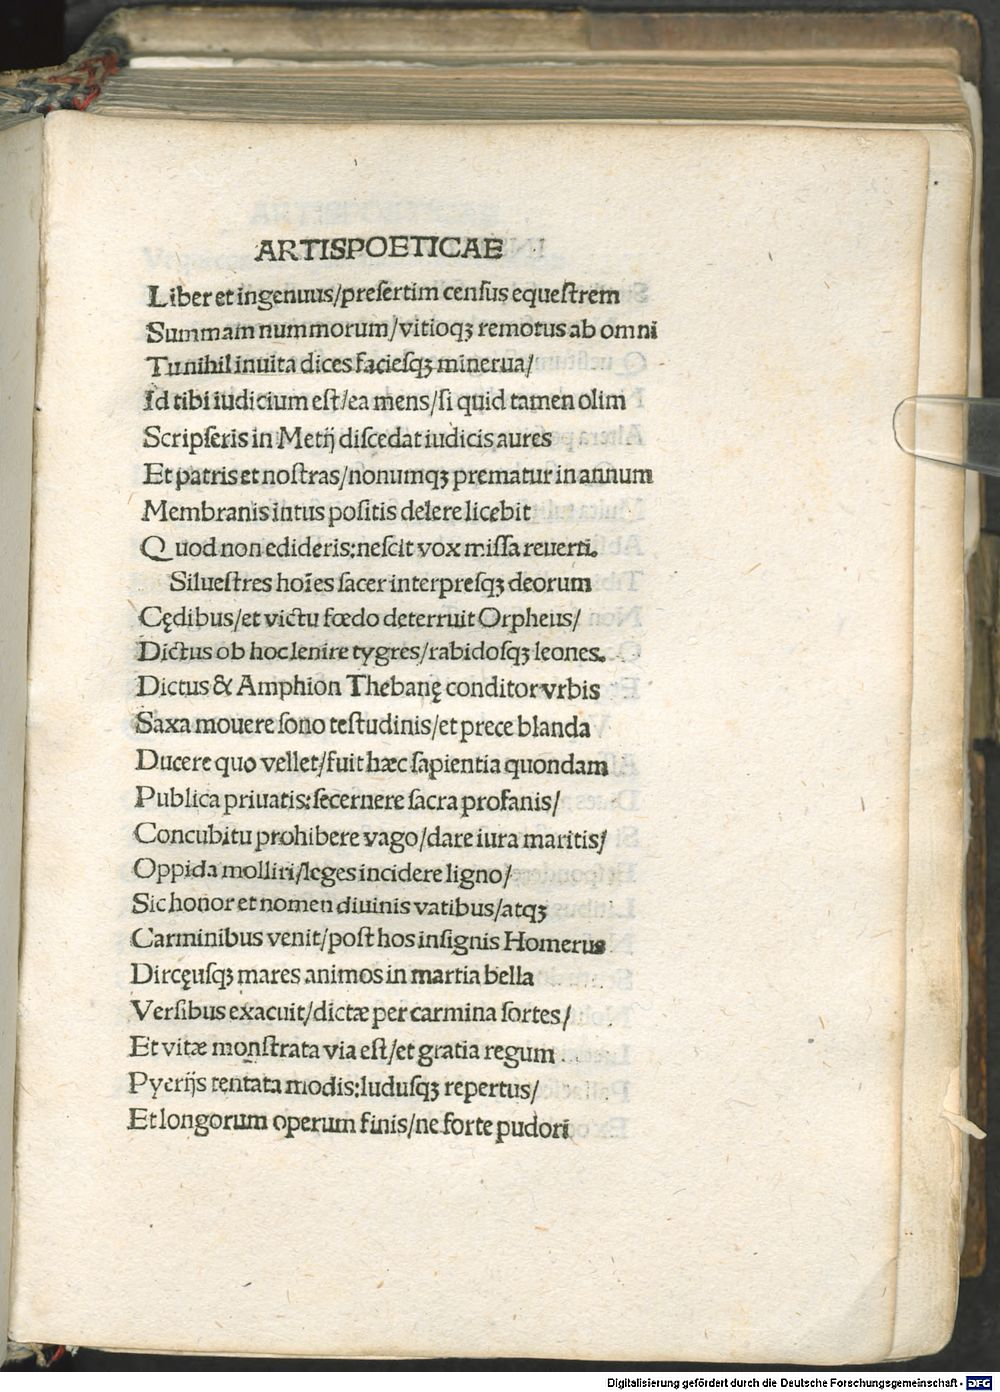 ARTISPOETICAE
Liber et ingenuus/presertim census equestrem
Summam nummorum/vitioqꝫ remotus ab omni
Tu nihil inuita dices faciesqꝫ minerua/
Id tibi iudicium est/ea mens/si quid tamen olim
Scripseris in Metij discedat iudicis aures
Et patris et nostras/nonumqꝫ prematur in annum
Membranis intus positis delere licebit
Quod non edideris:nescit vox missa reuerti.
Siluestres hoīes sacer interpresqꝫ deorum
Cędibus/et victu fœdo deterruit Orpheus/
Dictus ob hoc lenire tygres/rabidosqꝫ leones.
Dictus & Amphion Thebanę conditor vrbis
Saxa mouere sono testudinis/et prece blanda
Ducere quo vellet/fuit hæc sapientia quondam
Publica priuatis:secernere sacra profanis/
Concubitu prohibere vago/dare iura maritis/
Oppida molliri/leges incidere ligno/
Sic honor et nomen diuinis vatibus/atqꝫ
Carminibus venit/post hos insignis Homerus
Dircęusqꝫ mares animos in martia bella
Versibus exacuit/dictæ per carmina sortes/
Et vitæ monstrata via est/et gratia regum
Pyerijs tentata modis:ludusqꝫ repertus/
Et longorum operum finis/ne forte pudori
Digitalisierung gefördert durch die Deutsche Forschungsgemeinschaft - DFG